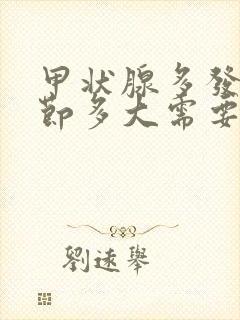 甲状腺多發
節多大需要
劉遠舉